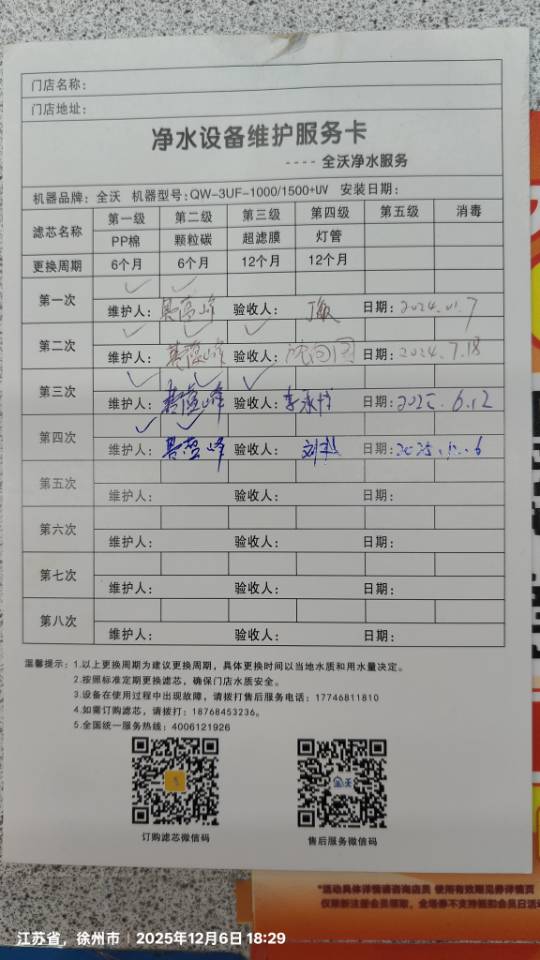 门店名称：
门店地址：
净水设备维护服务卡
---- 全沃净水服务
机器品牌：全沃 机器型号：QW-3UF-1000/1500+UV 安装日期：
滤芯名称 第一级 第二级 第三级 第四级 第五级 消毒
PP棉 颗粒碳 超滤膜 灯管
更换周期 6个月 6个月 12个月 12个月
第一次 ✓ ✓
维护人： 验收人： 日期：2024.01.7
第二次 ✓ ✓ ✓
维护人： 验收人： 日期：2024.7.18
第三次 ✓ ✓ ✓
维护人： 验收人： 日期：2025.6.12
第四次 ✓ ✓
维护人： 验收人： 日期：2025.
第五次
维护人： 验收人： 日期：
第六次
维护人： 验收人： 日期：
第七次
维护人： 验收人： 日期：
第八次
维护人： 验收人： 日期：
温馨提示：1.以上更换周期为建议更换周期，具体更换时间以当地水质和用水量决定。
2.按照标准定期更换滤芯，确保门店水质安全。
3.设备在使用过程中出现故障，请拨打售后服务电话：17746811810
4.如需订购滤芯，请拨打：18768453236。
5.全国统一服务热线：4006121926
订购滤芯微信码 售后服务微信码
*活动具体详情请咨询店员 使用有效期见券详情页
仅限新注册会员领取，全场券不支持抵扣会员日活
江苏省，徐州市 | 2025年12月6日 18:29